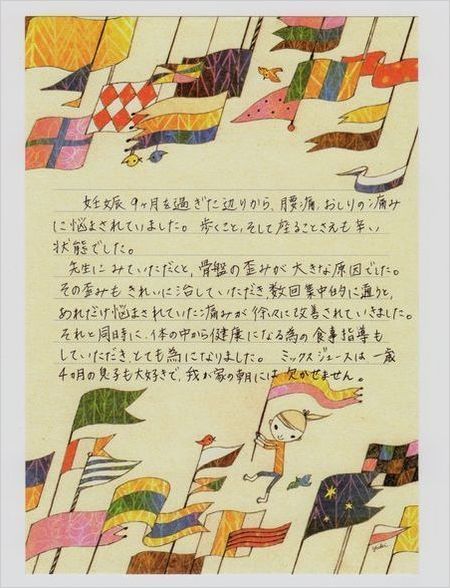 妊娠9ヶ月を過ぎた辺りから、腰痛、おしりの痛み
に悩まされていました。歩くこと、そして座ることさえも辛い
状態でした。
先生にみていただくと、骨盤の歪みが大きな原因でした。
その歪みもきれいに治していただき、数回集中的に通うと、
あれだけ悩まされていた痛みが徐々に改善されていきました。
それと同時に、体の中から健康になる為の食事指導も
していただき、とても為になりました。ミックスジュースは一歳
4ヵ月の息子も大好きで、我が家の朝には欠かせません。